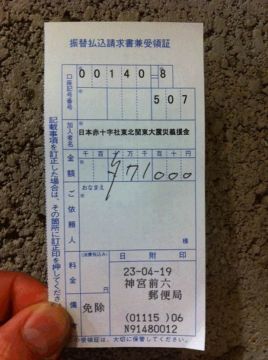 振替払込請求書兼受領証
口座記号番号
00140-8
507
加入者名
日本赤十字社東北関東大震災義援金
金額
千 百 十 万 千 百 十 円
¥71000
ご依頼人
おなまえ
様
料金
(消費税込み)
免除
備考
日附印
23-04-19
神宮前六
郵便局
(01115)06
N91480012
記載事項を訂正した場合は、その箇所に訂正印を押してください。
受領証は、大切に保管してください。